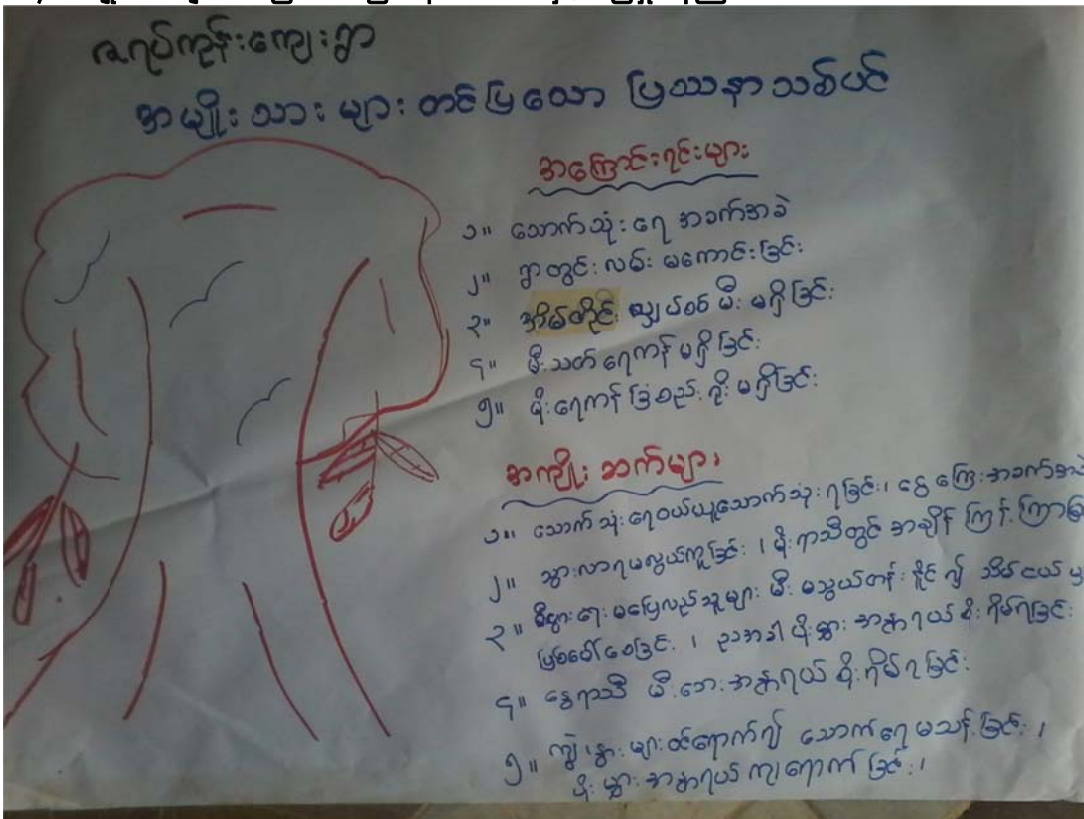 ဇရပ်ကုန်းကျေးရွာ
အမျိုးသားများ တင်ပြသော ပြဿနာသစ်ပင်
အကြောင်းရင်းများ
၁။ သောက်သုံးရေ အခက်အခဲ
၂။ ရွာတွင်းလမ်း မကောင်းခြင်း
၃။ အိမ်တိုင်း လျှပ်စစ်မီး မရှိခြင်း
၄။ မီးသတ်ရေကန် မရှိခြင်း
၅။ မိုးရေကန် ခြံစည်းရိုး မရှိခြင်း
အကျိုးဆက်များ
၁။ သောက်သုံးရေဝယ်ယူသောက်သုံးရခြင်း၊ ငွေကြေးအခက်အခဲ
၂။ သွားလာရမလွယ်ကူခြင်း ၊ မိုးရာသီတွင် အချိန်ကြန့်ကြာ
၃။ စီးပွားရေးမပြေလည်သူများ မီးမသွယ်တန်းနိုင်၍ သိမ်ငယ်မှု
ဖြစ်ပေါ်စေခြင်း ၊ ညအခါ ပိုးမွှားအန္တရာယ်စိုးရိမ်ရခြင်း
၄။ နွေရာသီ မီးဘေးအန္တရာယ်စိုးရိမ်ရခြင်း
၅။ ကျွဲ၊ နွားများဝင်ရောက်၍ သောက်ရေမသန့်ခြင်း ၊
ပိုးမွှားအန္တရာယ်ကျရောက်ခြင်း ၊